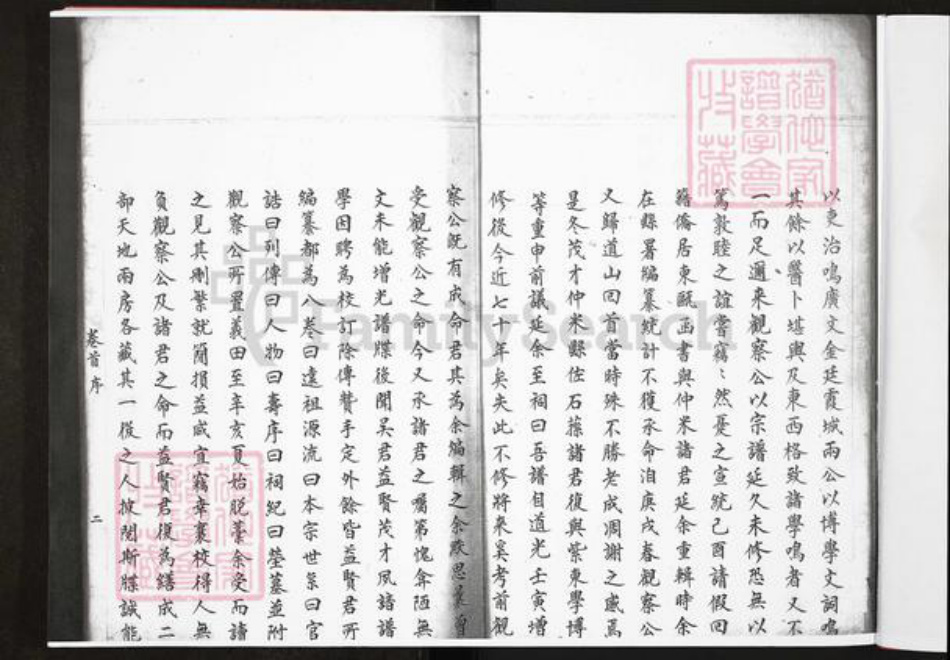 以吏治鳴廣文金廷霞城兩公以博學文詞鳴
其餘以醫卜堪輿及東西格致諸學鳴者又不
一而足邇來觀察公以宗譜延久未修恐無以
篤敦睦之誼嘗竊竊然憂之宣統己酉請假回
籍僑居東甌函書與仲米諸君延余重輯時余
在縣署編纂統計不獲承命洎庚戌春觀察公
又歸道山回首當時殊不勝老成凋謝之感焉
是冬茂才仲米縣佐石蓀諸君復與紫東學博
等重申前議延余至祠曰吾譜自道光壬寅增
修後今近七十年矣失此不修將來奚考前觀
察公既有成命君其為余編輯之余默思曩曾
受觀察公之命今又承諸君之囑第愧弇陋無
文未能增光譜牒後聞吳君益賢茂才夙諳譜
學因聘為校訂除傳贊手定外餘皆益賢君所
編纂都為八卷曰遠祖源流曰本宗世系曰官
誥曰列傳曰人物曰壽序曰祠紀曰塋墓並附
觀察公所置義田至辛亥夏始脫藁余受而讀
之見其刪繁就簡損益咸宜竊幸襄校得人無
負觀察公及諸君之命而益賢君復為繕成二
部天地兩房各藏其一後之人披閱斯牒誠能
卷首 序
二
猶他家
譜學會
收藏
猶他家
譜學會
收藏
FamilySearch